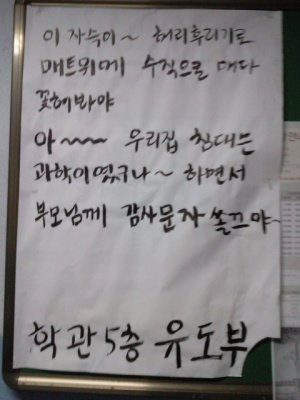 이 자슥이~ 허리후리기로
매트위에 수직으로 대다
꽂혀봐야
아~~~ 우리집 침대는
과학이였구나~ 하면서
부모님께 감사문자 쏠끄야~
학관5층 유도부